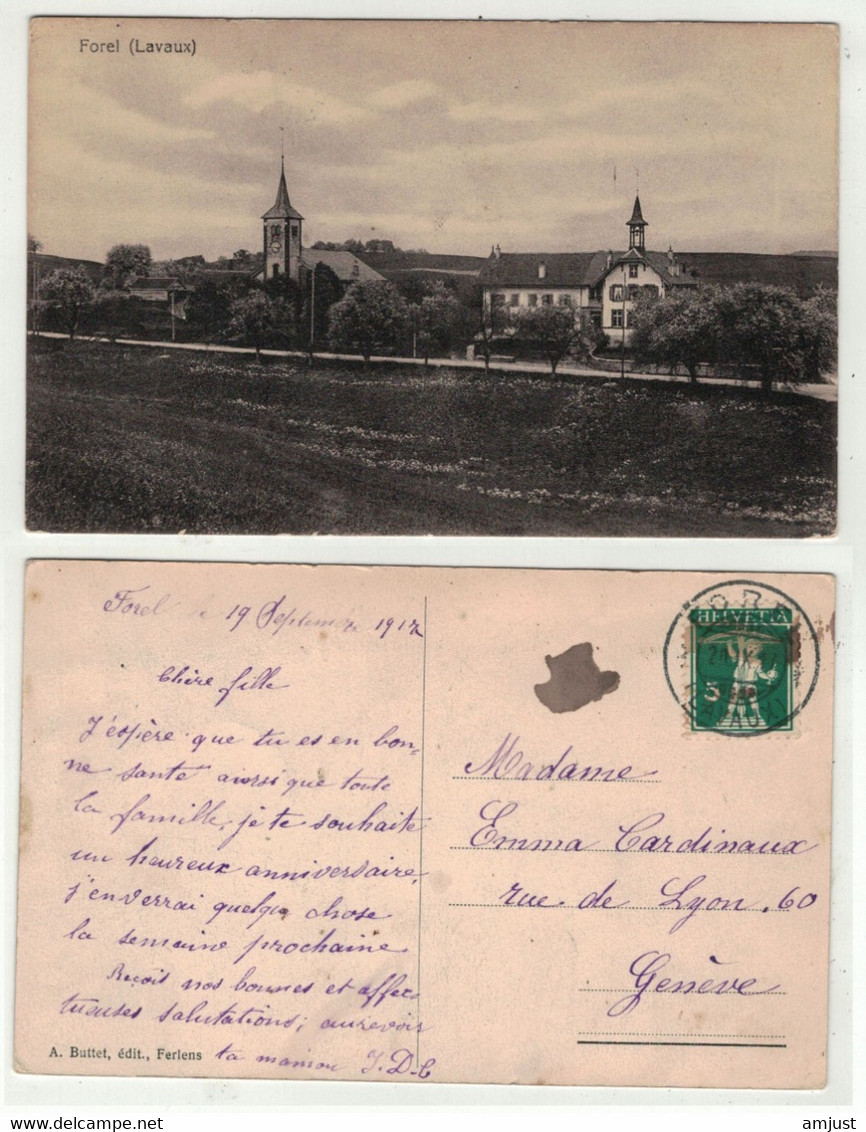 Forel (Lavaux)
Forel le 19 Septembre 1917
Chère fille
J'espère que tu es en bon-
ne santé ainsi que toute
la famille, je te souhaite
un heureux anniversaire,
j'enverrai quelque chose
la semaine prochaine
Reçois nos bonnes et affec-
tueuses salutations; au revoir
ta maman J. D-C
A. Buttet, édit., Ferlens
HELVETIA
5
Madame
Emma Cardinaux
rue de Lyon, 60
Genève
delcampe.net
amjust